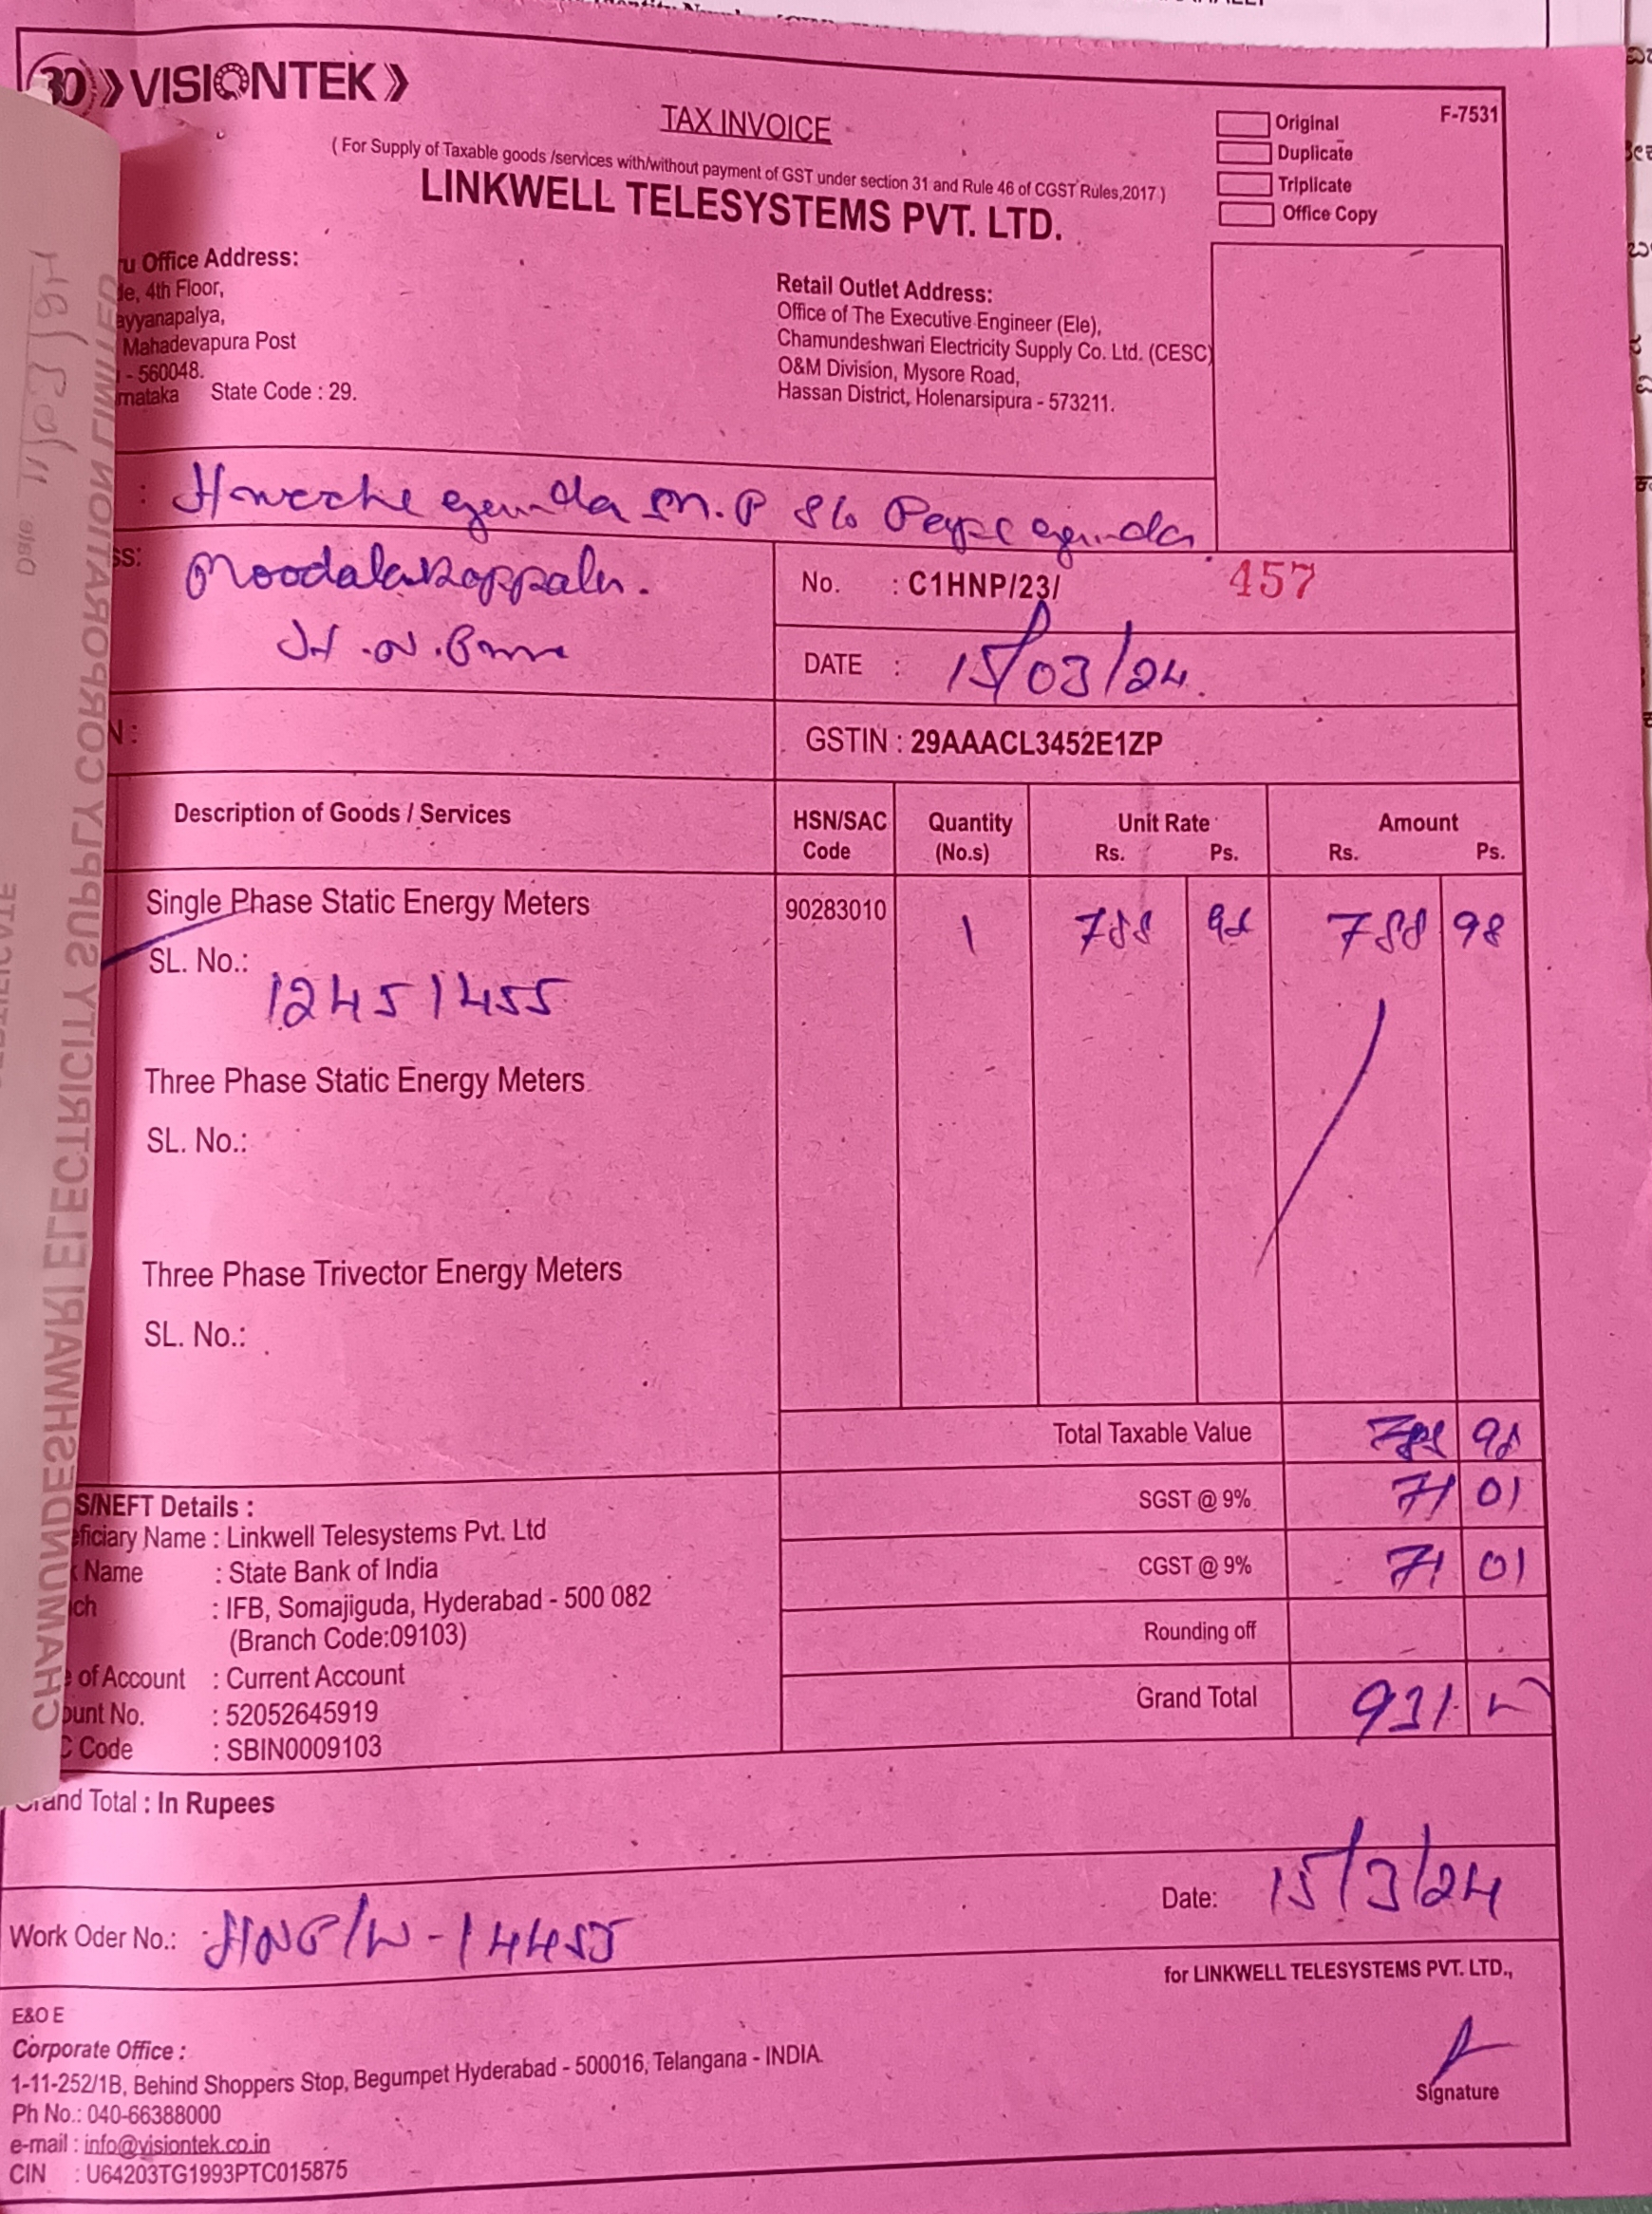 VISIONTEK
TAX INVOICE
F-7531
Original
Duplicate
Triplicate
Office Copy
( For Supply of Taxable goods /services with/without payment of GST under section 31 and Rule 46 of CGST Rules,2017 )
LINKWELL TELESYSTEMS PVT. LTD.
Office Address:
4th Floor,
Mahadevapura Post
- 560048.
State Code : 29.
Retail Outlet Address:
Office of The Executive Engineer (Ele),
Chamundeshwari Electricity Supply Co. Ltd. (CESC)
O&M Division, Mysore Road,
Hassan District, Holenarsipura - 573211.
M.P S/o
Moodalakoppalu.
H.N.
No. : C1HNP/23/ 457
DATE : 15/03/24.
GSTIN : 29AAACL3452E1ZP
Description of Goods / Services HSN/SAC Code Quantity (No.s) Unit Rate Rs. Ps. Amount Rs. Ps.
Single Phase Static Energy Meters 90283010 1 788 98 788 98
SL. No.:
12451455
Three Phase Static Energy Meters
SL. No.:
Three Phase Trivector Energy Meters
SL. No.:
Total Taxable Value 788 98
SGST @ 9% 71 01
CGST @ 9% 71 01
Rounding off
Grand Total 931
S/NEFT Details :
Name : Linkwell Telesystems Pvt. Ltd
Name : State Bank of India
: IFB, Somajiguda, Hyderabad - 500 082
(Branch Code:09103)
of Account : Current Account
No. : 52052645919
Code : SBIN0009103
Total : In Rupees
Work Oder No.: 14455
Date: 15/3/24
for LINKWELL TELESYSTEMS PVT. LTD.,
E&O E
Corporate Office :
1-11-252/1B, Behind Shoppers Stop, Begumpet Hyderabad - 500016, Telangana - INDIA.
Ph No.: 040-66388000
e-mail : info@visiontek.co.in
CIN : U64203TG1993PTC015875
Signature
CHAMUNDESHWARI ELECTRICITY SUPPLY CORPORATION LIMITED
Date